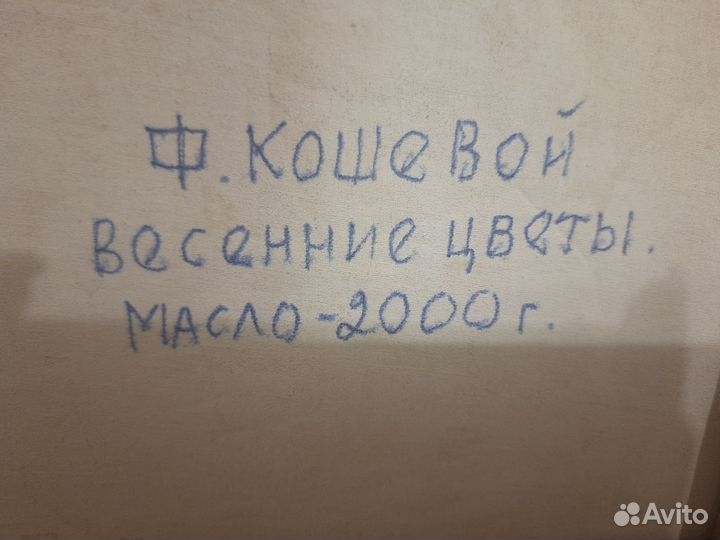 Ф. Кошевой
Весенние цветы.
Масло - 2000 г.
Avito